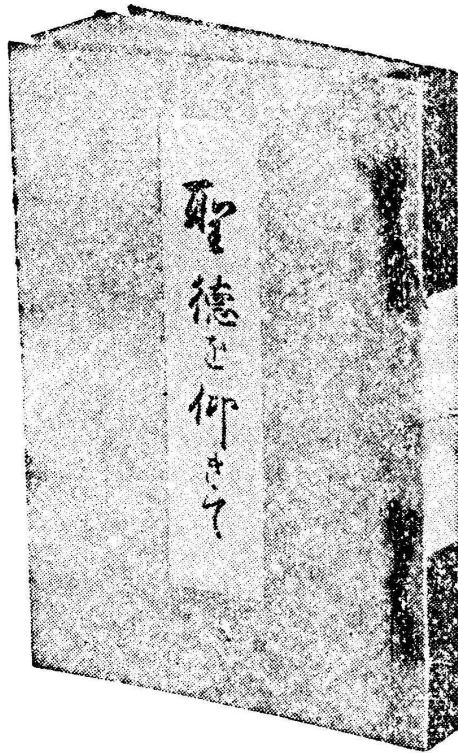 聖徳を仰きて